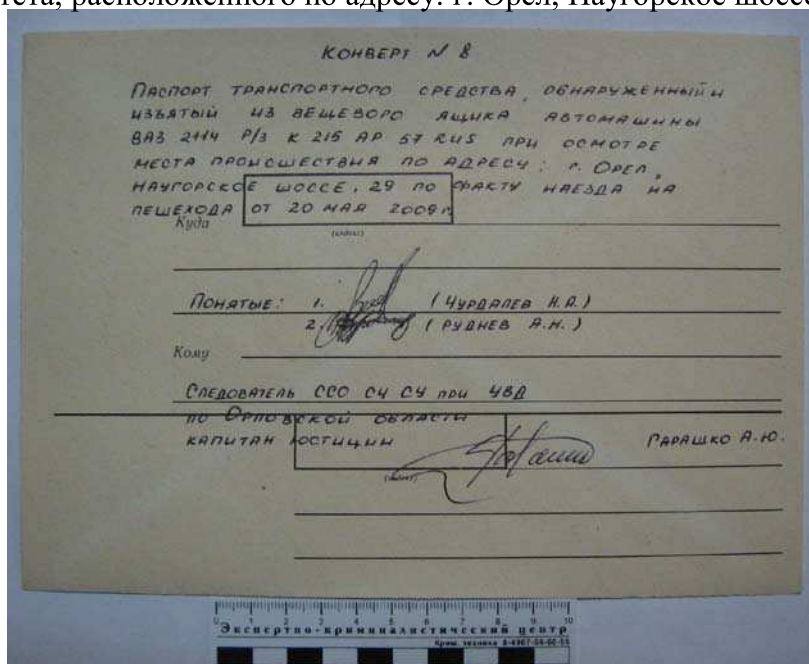 расположенного по адресу: г. Орел, Наугорское шоссе
КОНВЕРТ N 8
ПАСПОРТ ТРАНСПОРТНОГО СРЕДСТВА, ОБНАРУЖЕННЫЙ И
ИЗЪЯТЫЙ ИЗ ВЕЩЕВОГО ЯЩИКА АВТОМАШИНЫ
ВАЗ 2114 Р/З К 215 АР 57 RUS ПРИ ОСМОТРЕ
МЕСТА ПРОИСШЕСТВИЯ ПО АДРЕСУ: Г. ОРЕЛ,
НАУГОРСКОЕ ШОССЕ, 29 ПО ФАКТУ НАЕЗДА НА
ПЕШЕХОДА ОТ 20 МАЯ 2009 г.
Куда
(индекс)
ПОНЯТЫЕ: 1. (ЧУРДАЛЕВ Н.А.)
2. (РУДНЕВ А.Н.)
Кому
СЛЕДОВАТЕЛЬ ССО СЧ СУ ПРИ УВД
ПО ОРЛОВСКОЙ ОБЛАСТИ
КАПИТАН ЮСТИЦИИ ГАРАШКО А.Ю.
(индекс)
0 1 2 3 4 5 6 7 8 9 10
Экспертно-криминалистический центр
Крим. техника